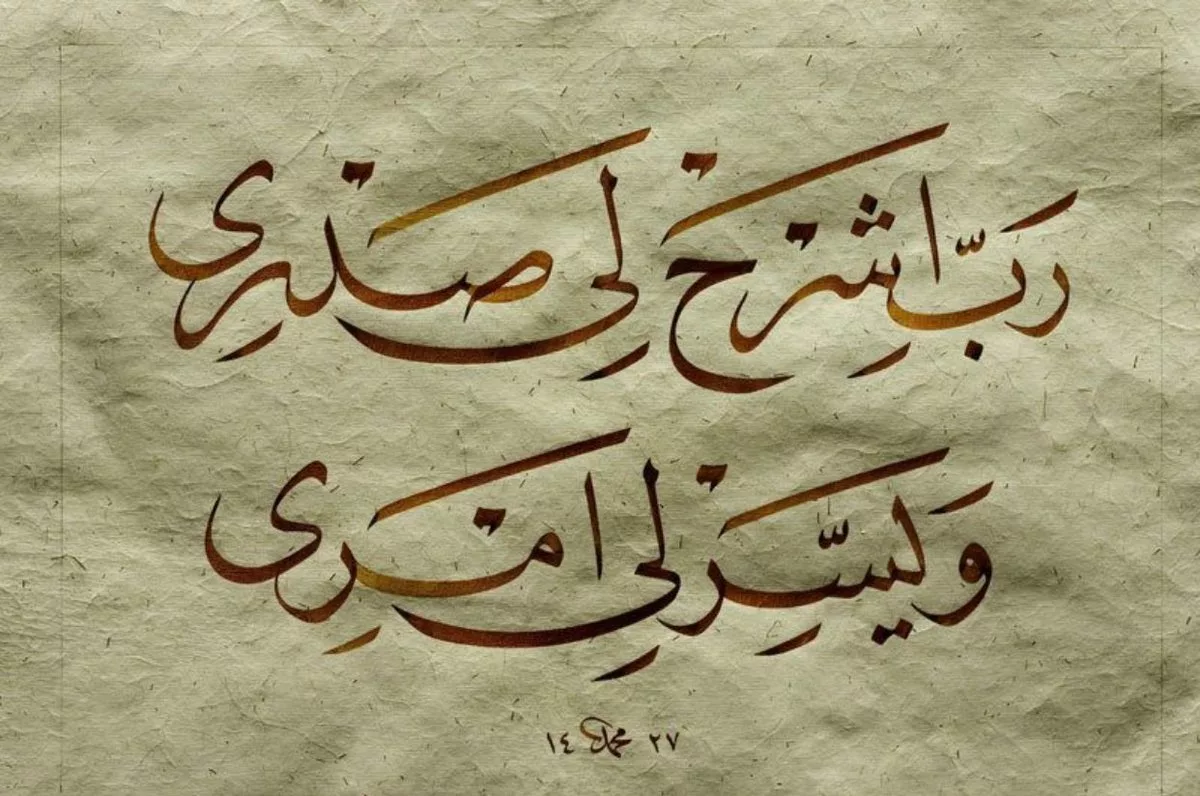 رَبِّ اشْرَحْ لِى صَدْرِى
وَيَسِّرْ لِى امْرِى
٢٧ محمد ١٤